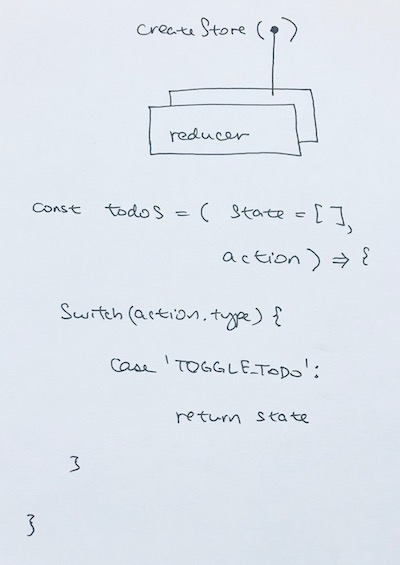 createStore( )
reducer
const todos = ( state = [ ],
action ) => {
Switch(action.type) {
Case 'TOGGLE_TODO':
return state
}
}